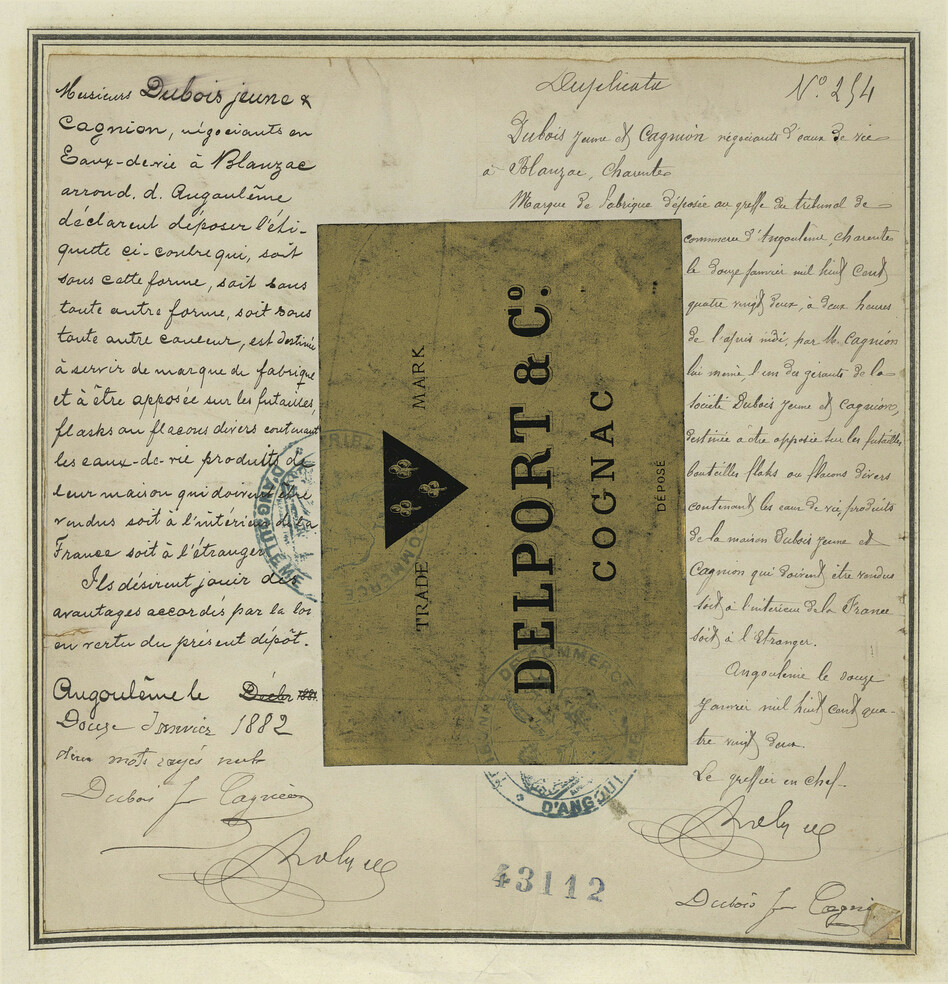 Messieurs Dubois jeune &
Cagnion, négociants en
Eaux-de-vie à Blanzac
arrond. d. Angoulême
déclarent déposer l'éti-
quette ci-contre qui, soit
sous cette forme, soit sous
toute autre forme, soit sous
toute autre couleur, est destinée
à servir de marque de fabrique
et à être apposée sur les futailles,
flasks ou flacons divers contenant
les eaux-de-vie produits de
leur maison qui doivent être
vendus soit à l'intérieur de la
France soit à l'étranger
Ils désirent jouir des
avantages accordés par la loi
en vertu du présent dépôt.
Angoulême le
Douze Janvier 1882
mots rayés nuls
Dubois Jne Cagnion
TRADE MARK
DELPORT & Co.
COGNAC
DÉPOSÉ
TRIB COMMERCE
D'ANGOULÊME
DE COMMERCE
D'ANGOUL
43112
Duplicata
No. 254
Dubois Jeune et Cagnion négociants d'eaux de vie
à Blanzac, Charente
Marque de Fabrique déposée au greffe du tribunal de
commerce d'Angoulême, Charente
le douze janvier mil huit cent
quatre vingt deux, à deux heures
de l'après midi, par M. Cagnion
lui même, l'un des gérants de la
société Dubois Jeune et Cagnion,
destinée à être apposée sur les futailles,
bouteilles flaks ou flacons divers
contenant les eaux de vie, produits
de la maison Dubois Jeune et
Cagnion qui doivent être vendus
soit à l'intérieur de la France
soit à l'Etranger.
Angoulême le douze
Janvier mil huit cent qua-
tre vingt deux.
Le greffier en chef
Dubois Jne Cagni